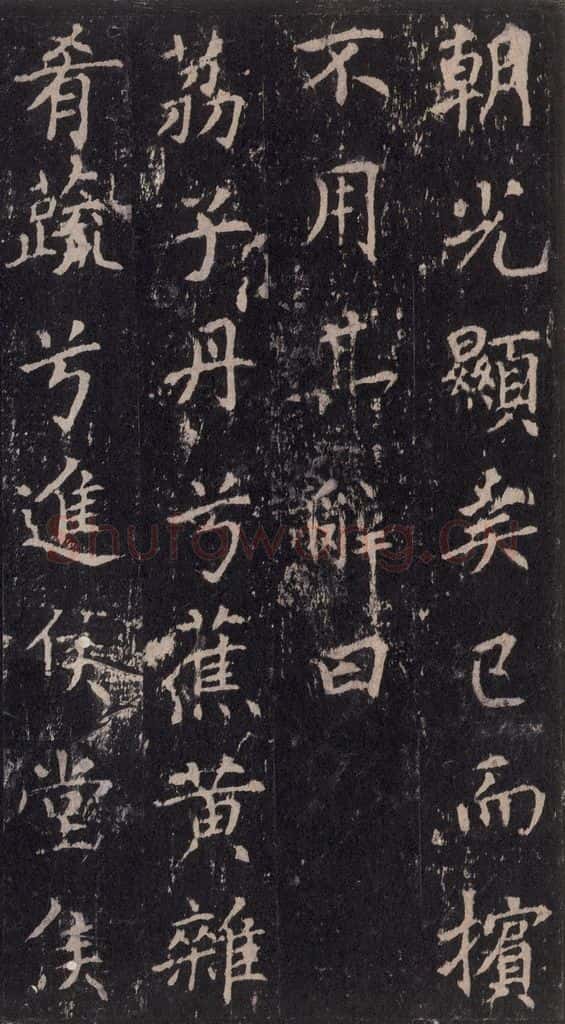 朝光顯矣已而擯
不用其辭曰
荔子丹兮蕉黄雜
肴蔬兮進侯堂侯
Shufawang.CN